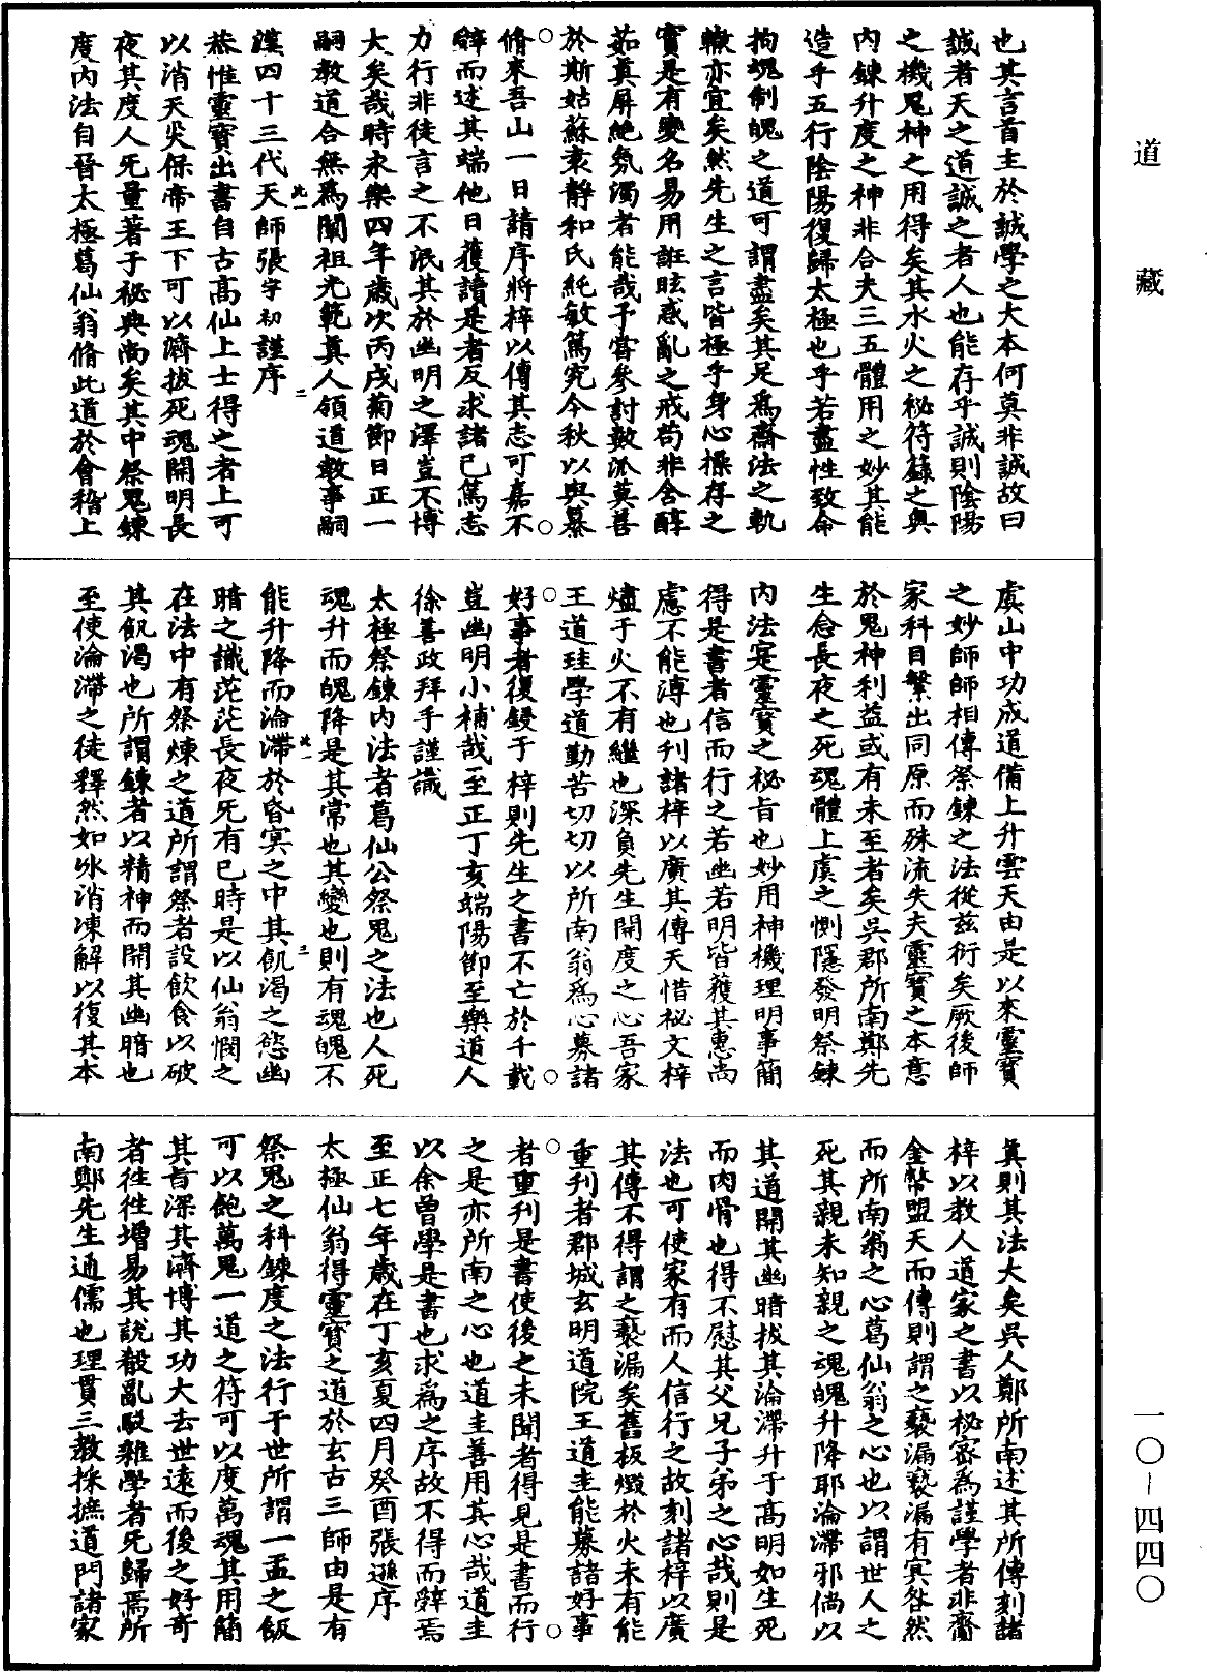 道藏
一〇－四四〇
也其言首主於誠學之大本何莫非誠故曰
誠者天之道誠之者人也能存乎誠則陰陽
之機鬼神之用得矣其水火之祕符籙之奧
內鍊升度之神非合夫三五體用之妙其能
造乎五行陰陽復歸太極也乎若盡性致命
拘魂制魄之道可謂盡矣其足爲齋法之軌
轍亦宜矣然先生之言皆極乎身心操存之
實是有變名易用誑眩惑亂之戒苟非含醇
茹真屏絕氛濁者能哉予嘗參討數派莫善
於斯姑蘇袁靜和氏純敏篤究今秋以與纂
脩來吾山一日請序將梓以傳其志可嘉不
辭而述其端他日獲讀是者反求諸己篤志
力行非徒言之不泯其於幽明之澤豈不博
大矣哉時永樂四年歲次丙戌菊節日正一
嗣教道合無爲闡祖光範真人領道教事嗣
漢四十三代天師張宇初謹序
恭惟靈寶出書自古高仙上士得之者上可
以消天災保帝王下可以濟拔死魂開明長
夜其度人无量著于祕典尚矣其中祭鬼鍊
度內法自晉太極葛仙翁脩此道於會稽上
虞山中功成道備上升雲天由是以來靈寶
之妙師師相傳祭鍊之法從兹衍矣厥後師
家科目繁出同原而殊流失夫靈寶之本意
於鬼神利益或有未至者矣吳郡所南鄭先
生念長夜之死魂體上虞之惻隱發明祭鍊
內法寔靈寶之祕旨也妙用神機理明事簡
得是書者信而行之若幽若明皆獲其惠尚
慮不能溥也刊諸梓以廣其傳天惜祕文梓
燼于火不有繼也深負先生開度之心吾家
王道珪學道勤苦切切以所南翁爲心募諸
好事者復鋟于梓則先生之書不亡於千載
豈幽明小補哉至正丁亥端陽節至樂道人
徐善政拜手謹識
太極祭鍊內法者葛仙公祭鬼之法也人死
魂升而魄降是其常也其變也則有魂魄不
能升降而淪滯於昏冥之中其飢渴之慾幽
暗之識茫茫長夜无有已時是以仙翁憫之
在法中有祭煉之道所謂祭者設飲食以破
其飢渴也所謂鍊者以精神而開其幽暗也
至使淪滯之徒釋然如冰消凍解以復其本
真則其法大矣吳人鄭所南述其所傳刻諸
梓以教人道家之書以祕密爲謹學者非齎
金幣盟天而傳則謂之褻漏褻漏有冥咎然
而所南翁之心葛仙翁之心也以謂世人之
死其親未知親之魂魄升降耶淪滯邪倘以
其道開其幽暗拔其淪滯升于高明如生死
而肉骨也得不慰其父兄子弟之心哉則是
法也可使家有而人信行之故刻諸梓以廣
其傳不得謂之褻漏矣舊板燬於火未有能
重刊者郡城玄明道院王道圭能募諸好事
者重刊是書使後之未聞者得見是書而行
之是亦所南之心也道圭善用其心哉道圭
以余曾學是書也求爲之序故不得而辭焉
至正七年歲在丁亥夏四月癸酉張遜序
太極仙翁得靈寶之道於玄古三師由是有
祭鬼之科鍊度之法行于世所謂一盂之飯
可以飽萬鬼一道之符可以度萬魂其用簡
其旨深其濟博其功大去世遠而後之好奇
者往往增易其說殽亂駁雜學者无歸焉所
南鄭先生通儒也理貫三教採摭道門諸家